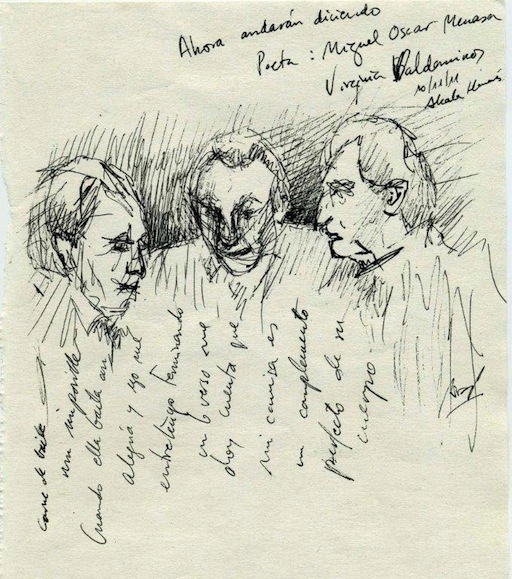 Ahora andarán diciendo
Poeta : Miguel Oscar Menassa
Virginia Valdominos
10/11/11
Alcalá
de baile
imposible
Cuando ella baila
alegría y yo me
entretengo terminando
verso me
doy cuenta que
mi camisa es
un complemento
perfecto de su
cuerpo.